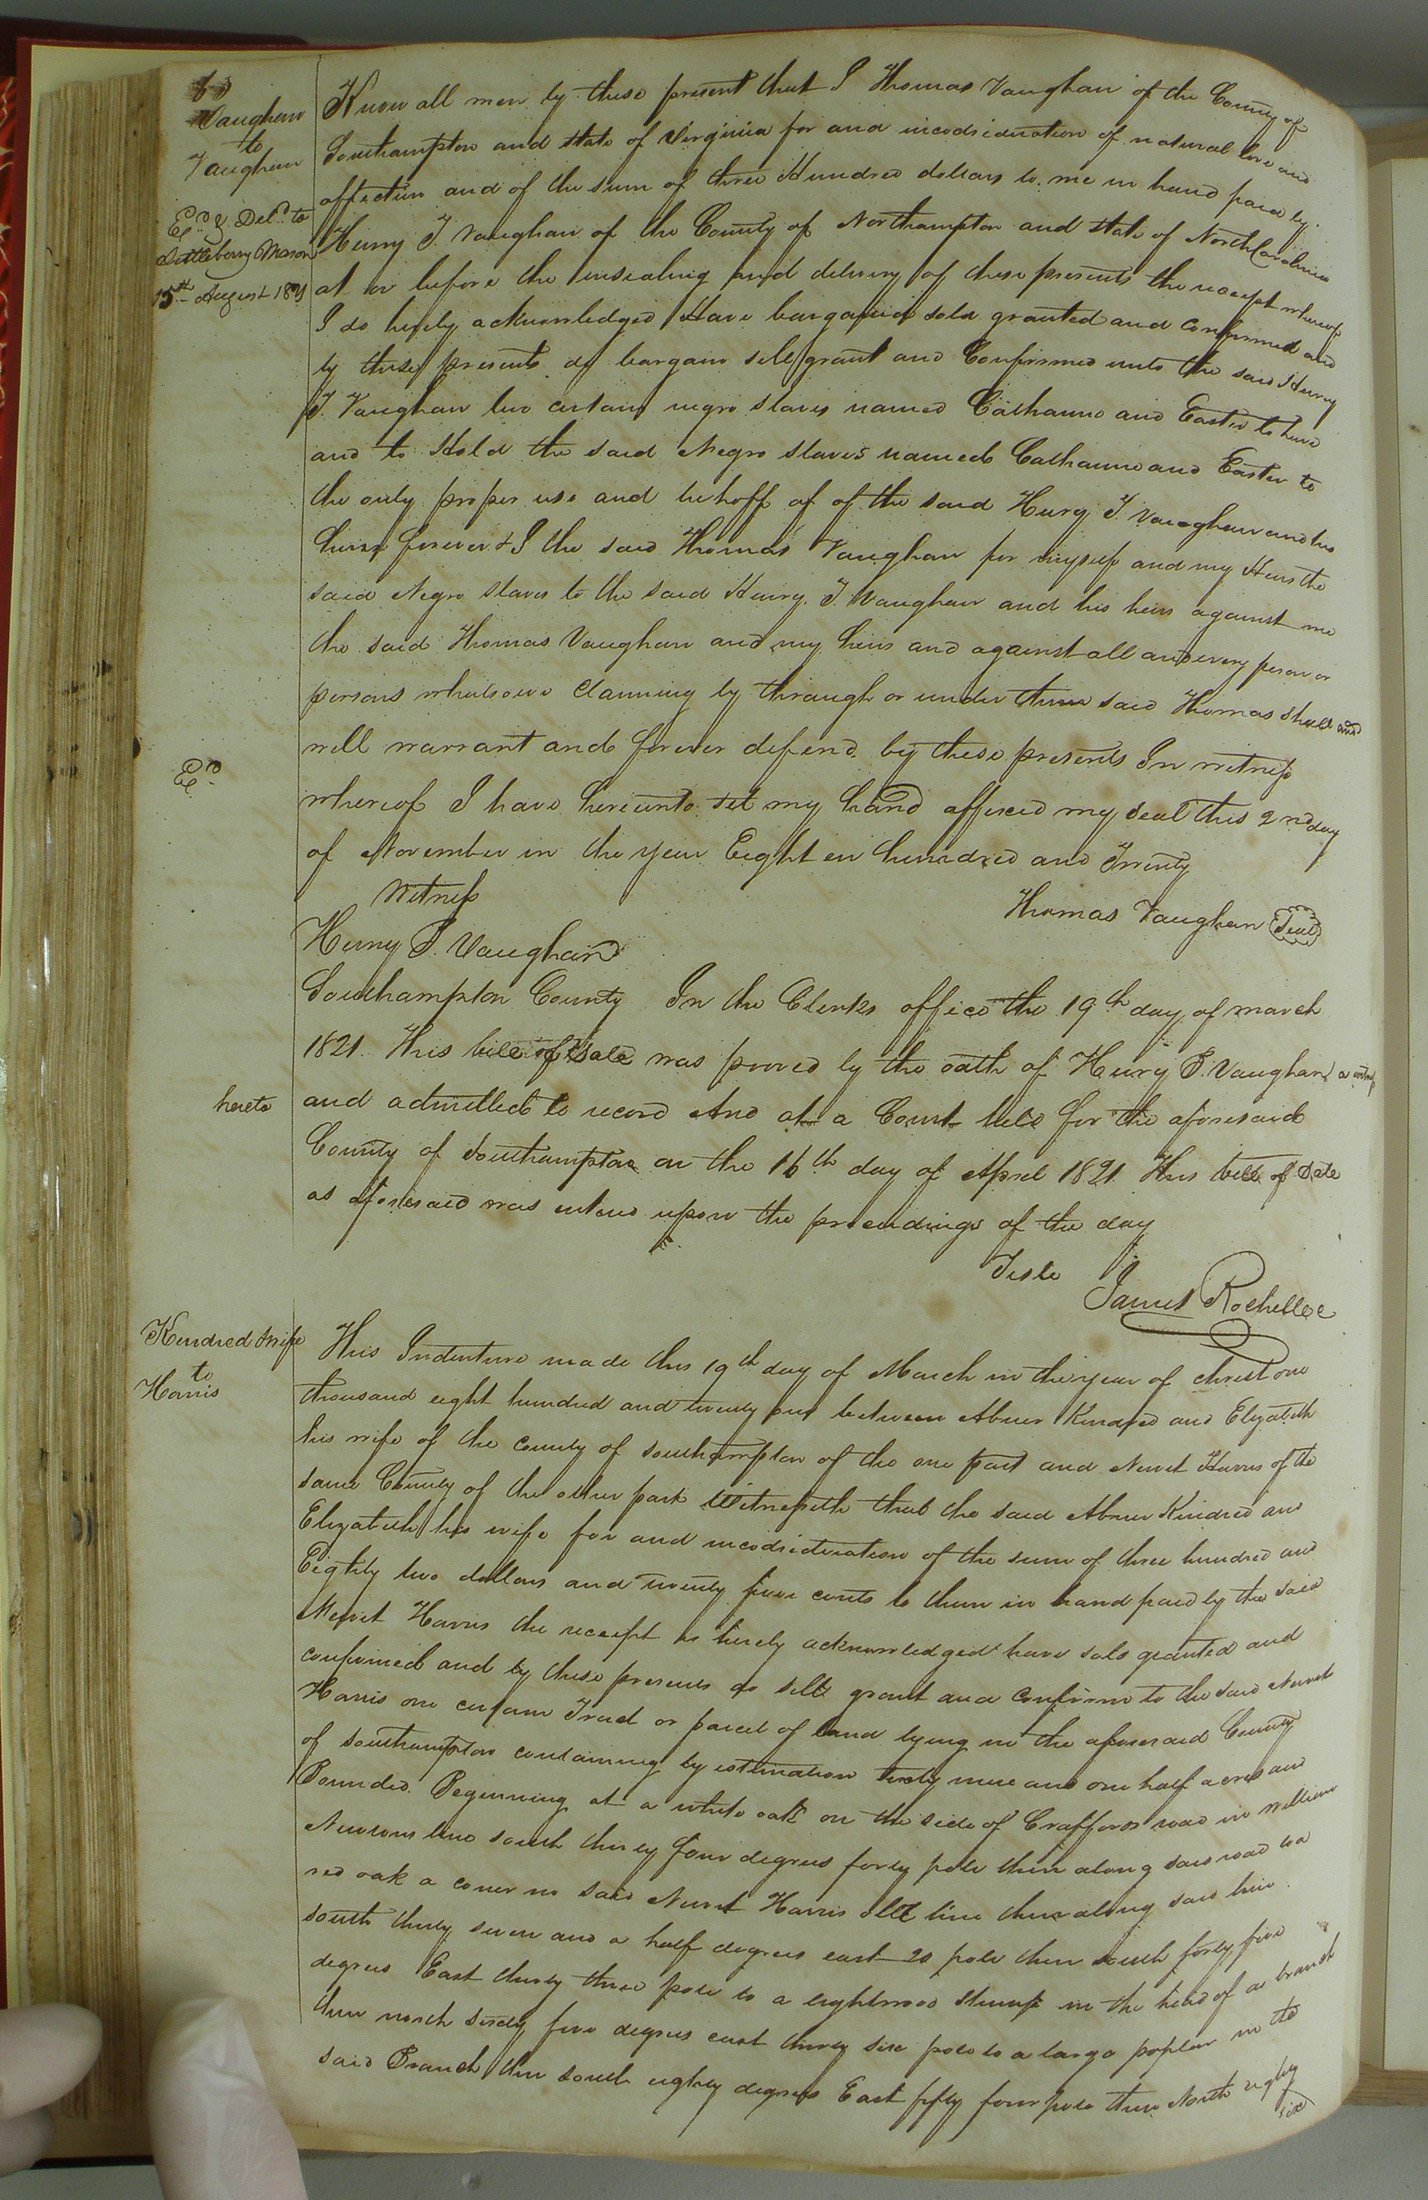 Vaughan
to
Vaughan
Exd & Deld to
Littleberry Mason
15th August 1821
Know all men by these present that I Thomas Vaughan of the County of
Southampton and state of Virginia for and incodsideration of natural love and
affection and of the sum of three Hundred dollars to me in hand paid by
Henry T. Vaughan of the County of Northampton and state of North Carolina
at or before the ensealing and delivery of these presents the receipt whereof
I do herely acknowledged Have bargained sold granted and Confirmed and
by these presents do bargain sell grant and Confirmed unto the said Henry
T. Vaughan two certain negro slaves named Catharine and Easter to have
and to Hold the said Negro slaves named Catharine and Easter to
the only proper use and behoff of of the said Henry T. Vaughan and his
heirs forever & I the said Thomas Vaughan for myself and my Heirs the
said Negro slaves to the said Henry T. Vaughan and his heirs against me
the said Thomas Vaughan and my heirs and against all and every person or
persons whatsoever Claiming by through or under them said Thomas shall and
will warrant and forever defend by these presents In witness
Exd
whereof I have hereunto set my hand affixed my seal this 2nd day
of November in the year Eighteen hundred and Twenty
Witness
Thomas Vaughan Seal
Henry P. Vaughan
Southampton County In the Clerks office the 19th day of march
1821. This bill of sale was proved by the oath of Henry P. Vaughan a witness
hereto
and admitted to record And at a Court held for the aforesaid
County of Southampton on the 16th day of April 1821 This bill of Sale
as aforesaid was entered upon the proceedings of the day
Teste James Rochelle
Kindred & wife
to
Harris
This Indenture made this 19th day of March in the year of christ one
thousand eight hundred and twenty one between Abner Kindred and Elizabeth
his wife of the county of Southampton of the one part and Newit Harris of the
same County of the other part Witnesseth that the said Abner Kindred and
Elizabeth his wife for and incodsideration of the sum of three hundred and
Eighty two dollars and twenty five cents to them in hand paid by the said
Newit Harris the receipt is herely acknowledged have sold granted and
confirmed and by these presents do sell grant and Confirm to the said Newit
Harris one certain Tract or parcel of land lying in the aforesaid County
of Southampton containing by estimation nine and one half acres and
Bounded. Beginning at a white oak on the side of Craffords road in William
Newsoms line south thirty four degrees forty pole then along said road to a
red oak a corner in said Newit Harris old line then along said line
south thirty seven and a half degrees east 20 pole then south forty five
degrees East thirty three pole to a lightwood stump in the head of a branch
then north sixty five degrees east thirty six pole to a large poplar in the
said Branch then south eighty degrees East fifty four pole then North eighty
six